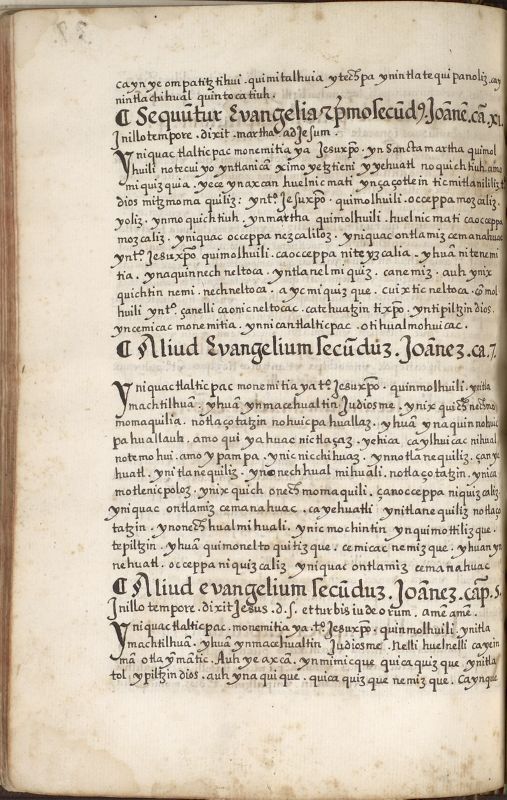 cayn ye ompatitztihui . quimitalhuia ytechpa ynintlatequipanoliz . cay
nintlachihual quintocatiuh .
¶ Sequūtur Evangelia . Joānē . cā . XI.
Jnillo tempore . dixit . martha ad Jesum .
Yniquac tlalticpac monemitia ya Jesuxpō . yn Sancta martha quimol
huili notecuiyo yntlanicā ximoyetztieni yyehuatl noquichtiuh . amo
miquizquia . yece ynaxcan huelnicmati ynçaçotlein ticmitlanililiz tᵉ
dios mitzmomaquiliz : yntᵒ. Jesuxpō . quimolhuili . occeppa mozcaliz .
yoliz . ynmoquichtiuh . ynmartha quimolhuili . huelnicmati caocceppa
mozcaliz . yniquac occeppa nezcaliloz . yniquac ontlamiz cemanahuac
yntᵒ. Jesuxpō quimolhuili . caocceppa niteyzcalia . yhuā nitenemi
tia . ynaquin nechneltoca . yntlanelmiquiz . canemiz . auh ynix
quichtin nemi . nechneltoca . aycmiquizque . cuix ticneltoca . qmol
huili yntᵒ. çanelli caonicneltocac . catehuatzin tixpō . yntipiltzin dios .
yncemicac monemitia . ynnican tlalticpac . otihualmohuicac .
¶ Aliud Evangelium secūduz . Joānez . ca . 7.
Yniquac tlalticpac monemitia ya tᵒ. Jesuxpō . quinmolhuili . ynitla
machtilhuā . yhuā ynmacehualtin Judiosme . ynixquich nechmo
momaquilia . notlaçotatzin nohuicpa huallaz . yhuā ynaquin nohuic
pa huallauh . amo qui yahuac nictlaçaz . yehica caylhuicac nihual
notemohui . amo ypampa . ynicnicchihuaz . ynnotlanequiliz . çan ye
huatl . ynitlanequiliz . ynonechhualmihuali . notlaçotatzin . ynica
motlenicpoloz . ynixquich onechmomaquili . çanocceppa niquizcaliz
yniquac ontlamiz cemanahuac . cayehuatli ynitlanequiliz notlaço
tatzin . ynonechhualmihuali . ynicmochintin ynquimottilizque .
tepiltzin . yhuā quimoneltoquitizque . cemicac nemizque . yhuan yn
nehuatl . occeppa niquizcaliz yniquac ontlamiz cemanahuac
¶ Aliud evangelium secūduz . Joānez . cāp . 5.
Jnillo tempore . dixit Jesus . d . s . et turbis iudeorum . amē amē .
Yniquac tlalticpac . monemitia ya . tᵒ. Jesuxpō . quinmolhuili . ynitla
machtilhuā . yhuā ynmacehualtin Judiosme . Nelli huelnelli cayein
mā otlaymātic . Auh ye axcā . ynmimicque quicaquizque ynitla
tol . ypiltzin dios . auh ynaquique . quicaquizque nemizque . Caynque